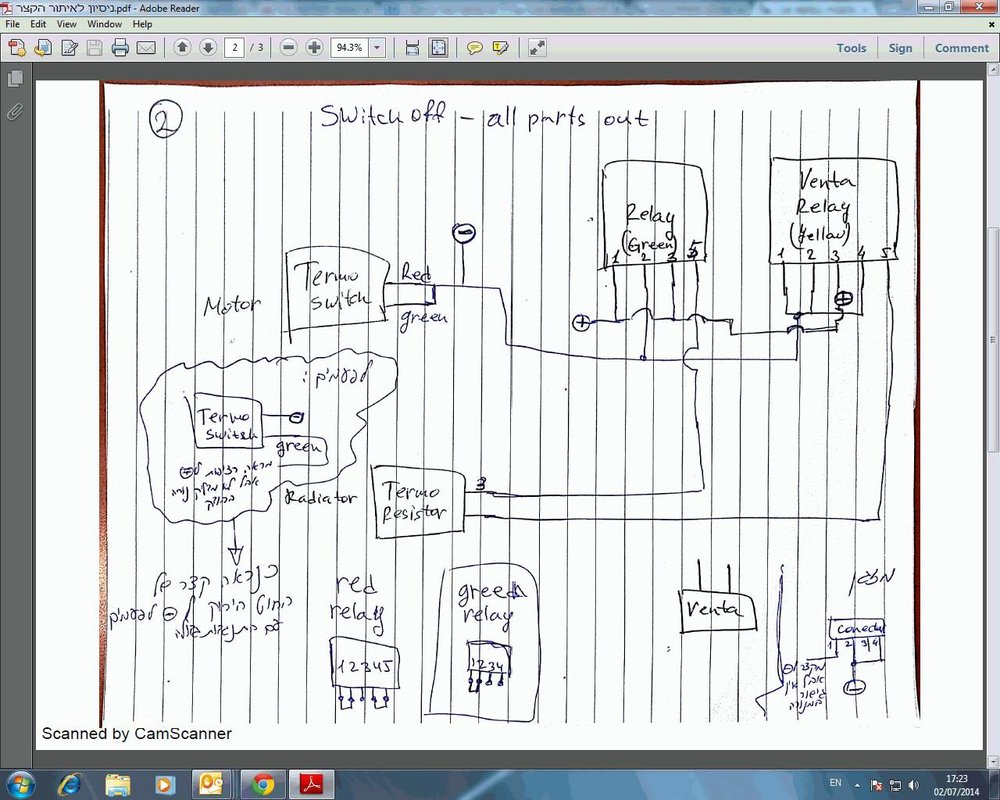 ניסיון לאיתור הקצר.pdf - Adobe Reader
File Edit View Window Help
2 / 3
94.3%
Tools Sign Comment
2
Switch off - all parts out
Relay
(Green)
1 2 3 5
Venta
Relay
(Yellow)
1 2 3 4 5
Termo
Switch
Red
green
Motor
לפעמים:
Termo
Switch
green
Radiator
Termo
Resistor
3
כנראה קצר של
החוט הירוק ל
לפעמים
red
relay
1 2 3 4 5
green
relay
1 2 3 4
Venta
מצגן
1 2 3 4
אבל אין
Scanned by CamScanner
EN
17:23
02/07/2014